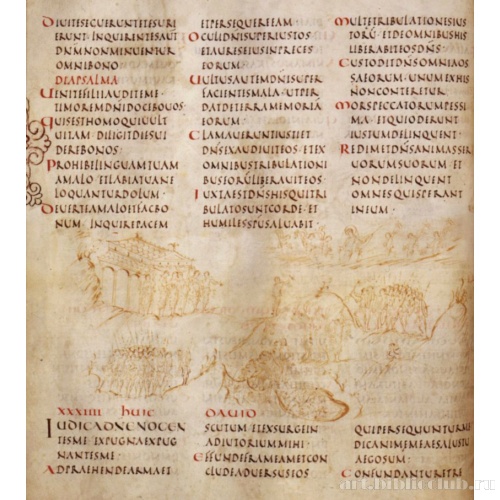 DIUITESEGUERUNTETESURI
ERUNT INQUIRENTESAUT
DÑMNONMINUENTUR
OMNIBONO·
DIAPSALMA
UENITEFILIIAUDITEME·
TIMOREMDÑIDOCEBOUOS
QUISESTHOMOQUIUULT
UITAM DILIGITDIESUI
DEREBONOS·
PROHIBELINGUAMTUAM
AMALO· ETLABIATUANE
LOQUANTURDOLUM·
DEUERTEAMALOETFACBO
NUM· INQUIREPACEM
ETPERSEQUEREEAM
OCULIDÑISUPERIUSTOS
ETAURESEIUSINPRECES
EORUM·
UULTUSAUTEMDÑISUPER
FACIENTISMALA· UTPER
DATDETERRAMEMORIĀ
EORUM·
CLAMAUERUNTIUSTIET
DÑSEXAUDIUITEOS· ETEX
OMNIBUSTRIBULATIONI
BUSEORŪLIBERAUITEOS·
IUXTAESTDÑSHISQUITRI
BULATOSUNTCORDE· ET
HUMILESSPŪSALUABIT·
MULTETRIBULATIONISIUS
TORŪ· ETDEOMNIBUSHIS
LIBERABITEOSDÑS·
CUSTODITDÑSOMNIAOS
SAEORUM· UNUMEXHIS
NONCONTERETUR·
MORSPECCATORUMPESSI
MA· ETQUIODERUNT
IUSTUMDELINQUENT·
REDIMETDÑSANIMASSER
UORUMSUORUM· ET
NONDELINQUENT
OMNESQUISPERANT
INEUM·
XXXIIII HUIC DAUID
IUDICADNENOCEN
TESME· EXPUGNAEXPUG
NANTESME·
ADPRAEHENDEARMAET
SCUTUM· ETEXSURGEIN
ADIUTORIUMMIHI·
EFFUNDEFRAMEAMETCON
CLUDEADUERSUSEOS
QUIPERSEQUUNTURME
DICANIMEMEAESALUSTU
AEGOSUM·
CONFUNDANTURETRE
art.biblioclub.ru